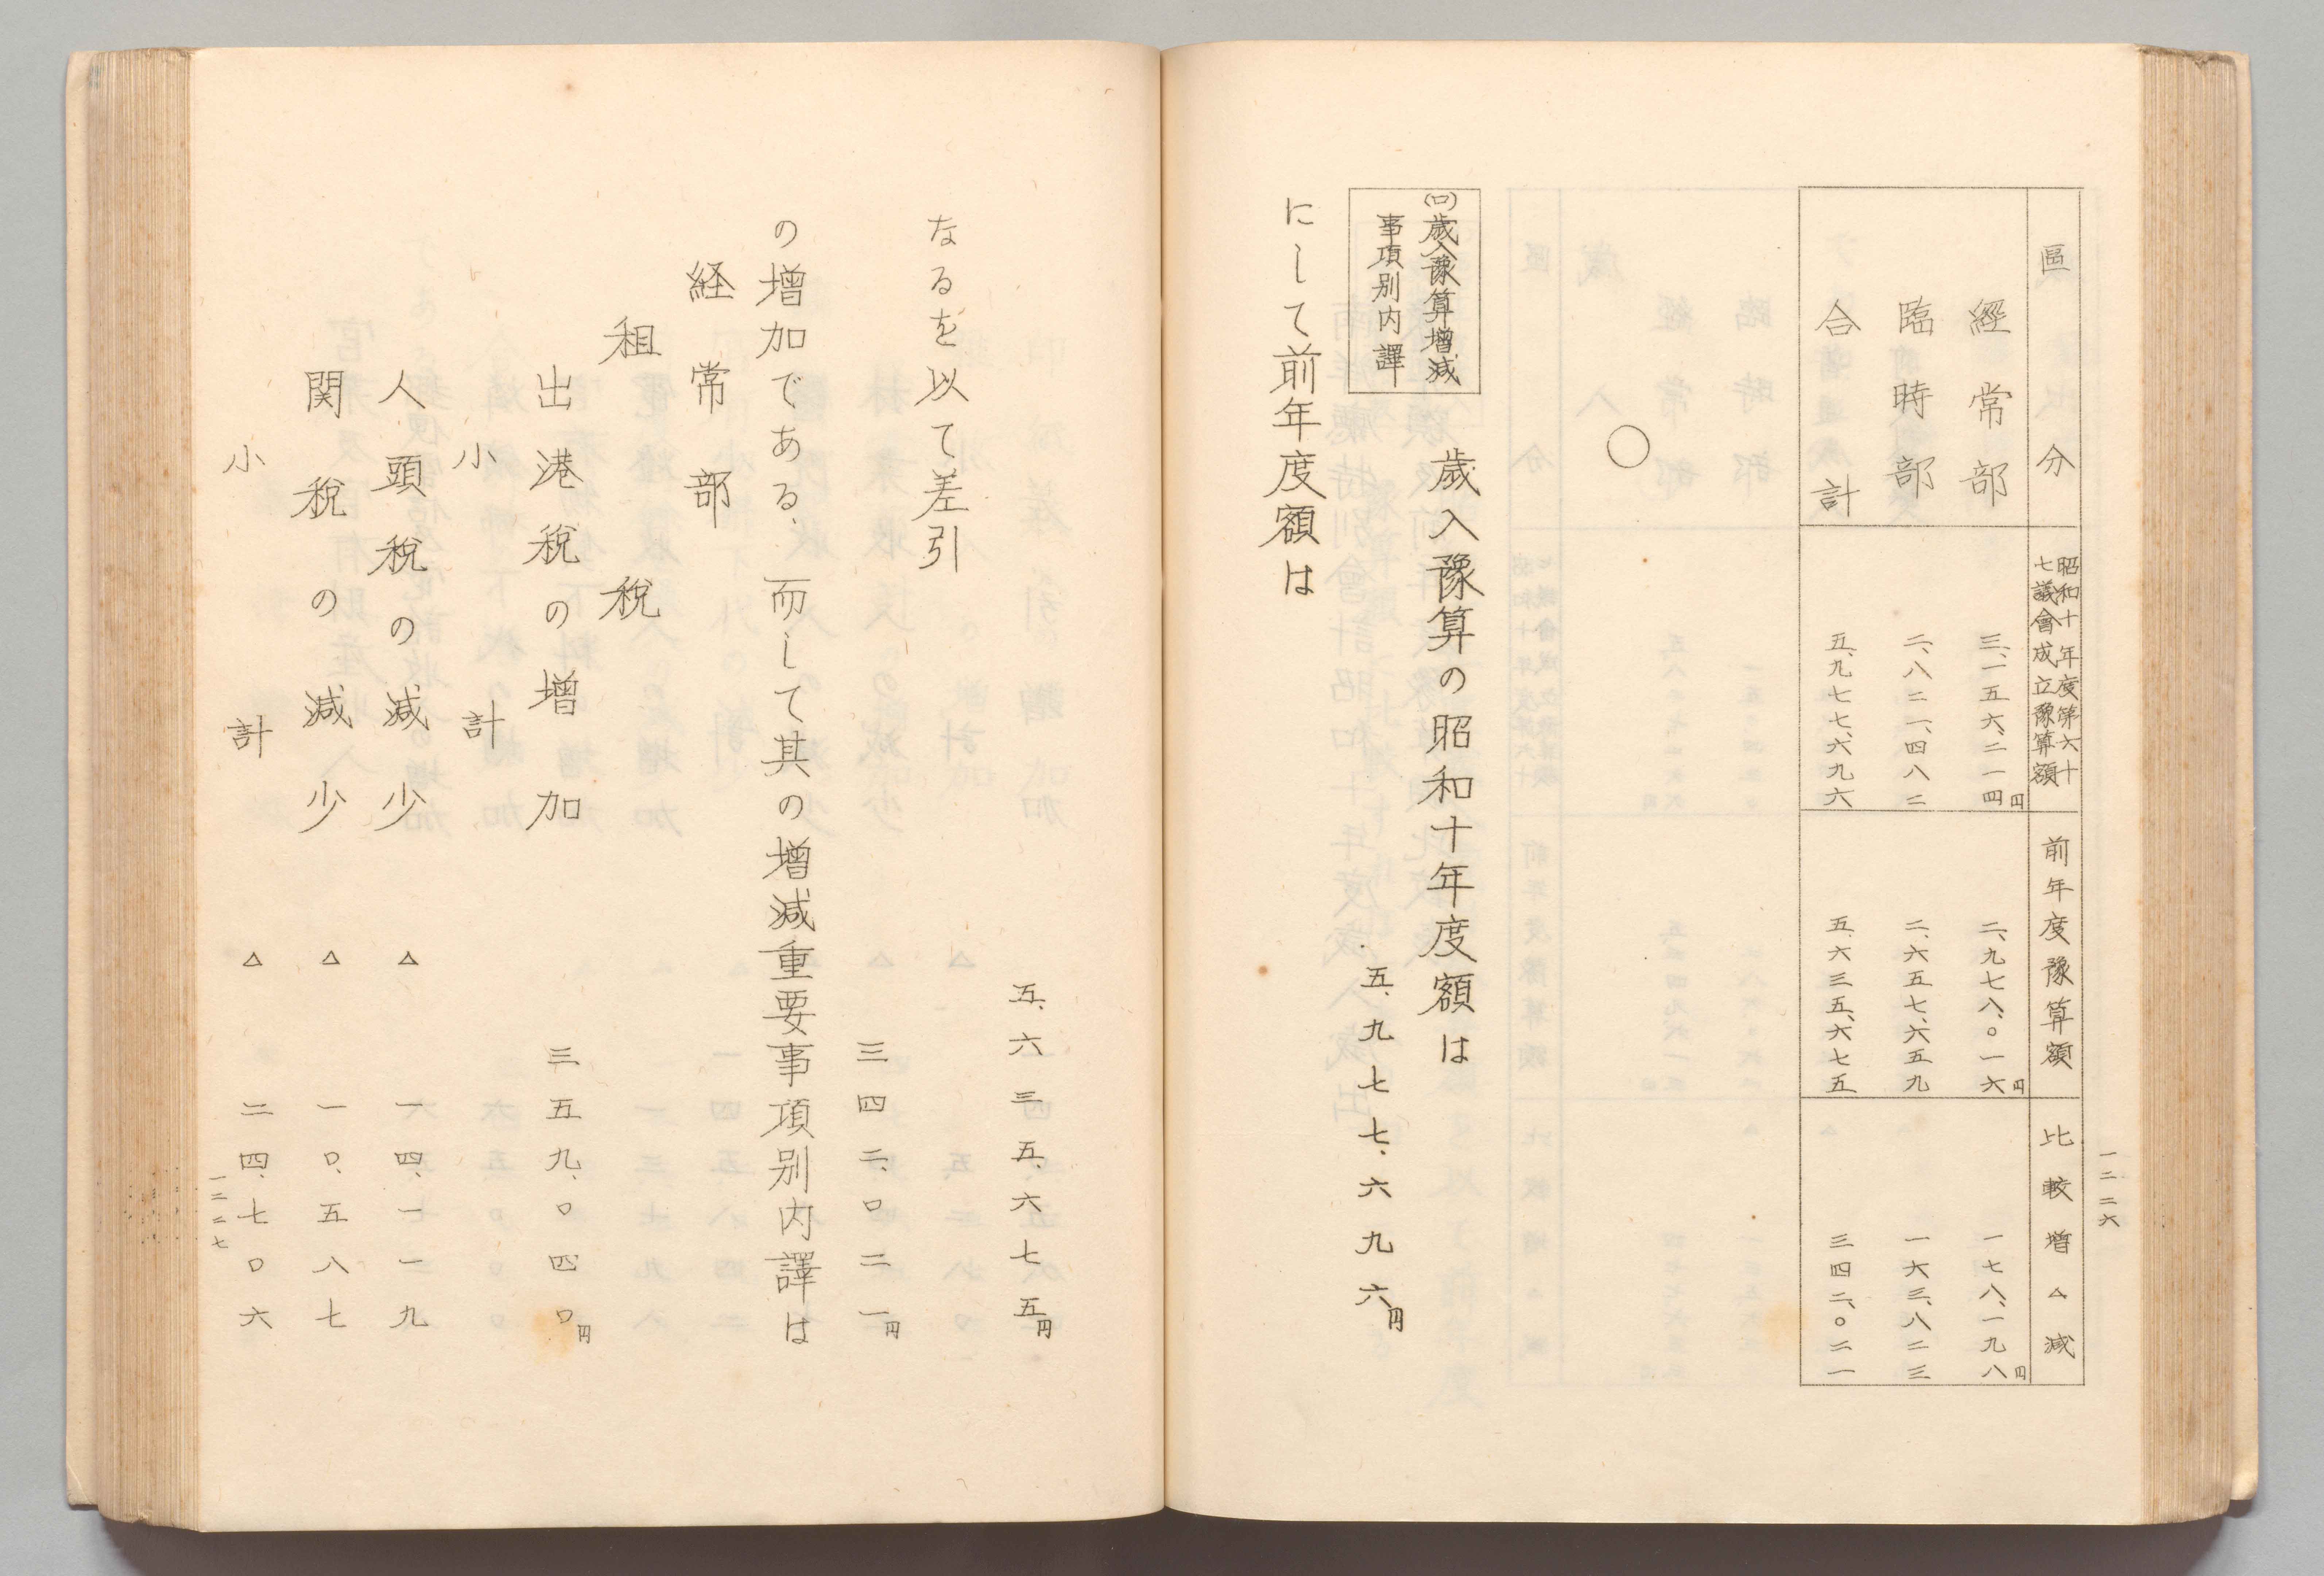 一二二六
區分
昭和十年度第六十
七議會成立豫算額
前年度豫算額
比較增△減
經常部
三、一五六、二一四円
二、九七八、〇一六円
一七八、一九八円
臨時部
二、八二一、四八二
二、六五七、六五九
一六三、八二三
合計
五、九七七、六九六
五、六三五、六七五
三四二、〇二一
○
(ロ)歲入豫算增減
事項別内譯
歲入豫算の昭和十年度額は
五、九七七、六九六円
にして前年度額は
五、六三五、六七五円
なるを以て差引
三四二、〇二一円
の增加である、而して其の增減重要事項別内譯は
経常部
租稅
出港稅の增加
三五九、〇四〇円
小計
人頭稅の減少
△一四、一一九
関稅の減少
△一〇、五八七
小計
△二四、七〇六
一二二七